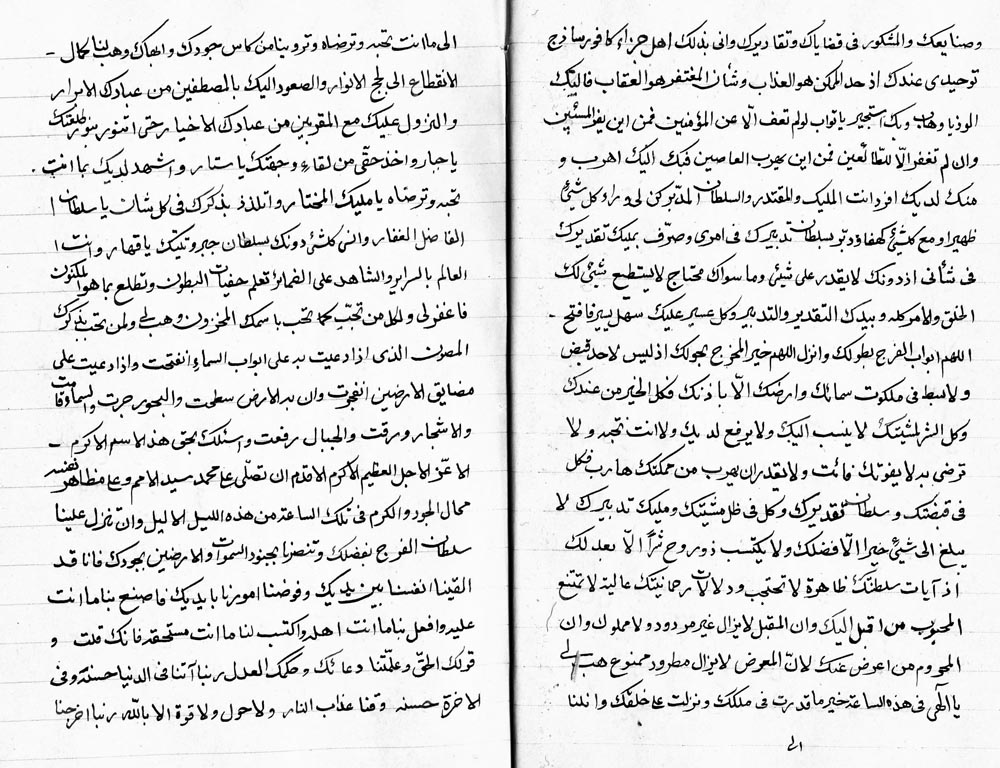 وصنايعك والمشكور في قضاياك وتقاديرك واني بذلك اهل جزاء كافور سازج
توحيدى عندك اذ حد الممكن هو العذاب وشأن المغتفر هو العقاب فاليك
الوذ يا وهاب وبك استجير يا تواب لو لم تعف الا عن المؤمنين فمن اين يفر المسيئين
وان لم تغفر الا للطائعين فمن اين يهرب العاصين فبك اليك اهرب و
منك لديك افر اذ انت المليك والمقتدر والسلطان المدبر كن لى وراء كل شئ
ظهيرا ومع كلشئ كهفا ودبر بسلطان تدبيرك في امرى وصرف بمليك تقديرك
في شأنى اذ دونك لا يقدر على شئ وما سواك محتاج لا يستطيع بشئ لك
الخلق والامر كله وبيدك التقدير والتدبير وكل عسير عليك سهل يسير فافتح
اللهم ابواب الفرج بطولك وانزل اللهم خير المخرج بحولك اذ ليس لاحد قبض
ولا بسط في ملكوت سمائك وارضك الا باذنك فكل الخير من عندك
وكل الشر لمشيتك لا ينسب اليك ولا يرفع لديك ولا انت تحبه ولا
ترضى به لا يفوتك فائت ولا يقدر ان يهرب من مملكتك هارب فكل
في قبضتك وسلطان تقديرك وكل في ظل مشيتك ومليك تدبيرك لا
يبلغ الى شئ خيرا الا فضلك ولا يكتسب ذو روح شرا الا بعد لك
اذ آيات سلطنتك ظاهرة لا تحتجب ودلالات رحمانيتك عالية لا تمتنع
المحبوب من اقبل اليك وان المقبل لا يزال غير مردود ولا مملوك وان
المحروم من اعرض عنك لان المعرض لا يزال مطرود ممنوع هب لي
يا الهى في هذه الساعة خير ما قدرت في ملكك ونزلت على خلقك وانلنا
الى
الى ما انت تحبه وترضاه وتروينا من كاس جودك وابهاك وهب لنا كمال
الانقطاع الى لجج الانوار والصعود اليك بالمصطفين من عبادك الابرار
والنزول عليك مع المقربين من عبادك الاخيار حتى اتنور بنور طلعتك
يا جبار واخذ حقى من لقاء وجهتك يا ستار واشهد لديك بما انت
تحبه وترضاه يا مليك المختار واتلذذ بذكرك في كل شان يا سلطان
الفاضل الغفار والى كلشئ دونك بسلطان جبروتيتك يا قهار وانت
العالم بالسراير والشاهد على الضمائر تعلم خفيات البطون وتطلع بما هو المكنون
فاغفر لى ولكل من تحب كما تحب باسمك المخزون وهب لى ولمن تحب بذكرك
المصون الذى اذا دعيت به على ابواب السماء انفتحت واذا دعيت على
مضايق الارضين انفجرت وان به الارض سطحت والبحور جرت والسماء قامت
والاشجار ورقت والجبال رفعت واسئلك بحق هذا الاسم الاكرم
الاعز الاجل العظيم الاكرم الاقدم ان تصلى على محمد سيد الامم وعلى مظاهر نفسه
محال الجود والكرم في تلك الساعة من هذه الليل الاليل وان تنزل علينا
سلطان الفرج بفضلك وتنصرنا بجنود السموات والارضين بجودك فانا قد
القينا انفسنا بين يديك وفوضنا امورنا بايديك فاصنع بنا ما انت
عليه وافعل بنا ما انت اهله واكتب لنا ما انت مستحقه فانك قلت و
قولك الحق وعلمتنا دعائك وحكمك العدل ربنا آتنا في الدنيا حسنة وفى
الاخرة حسنة وقنا عذاب النار ولا حول ولا قوة الا بالله ربنا اخرجنا